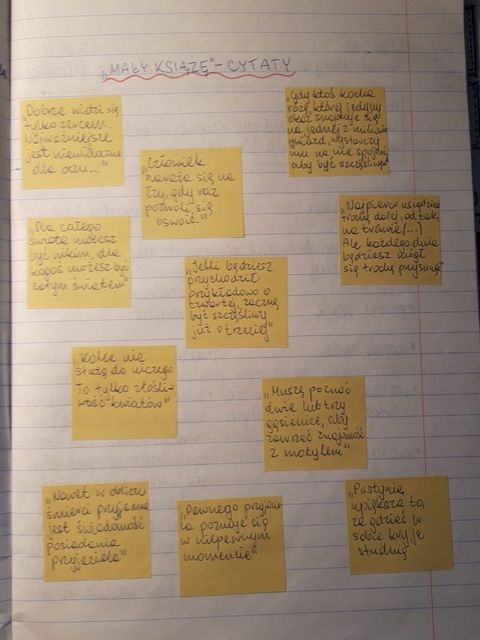 „MAŁY KSIĄŻĘ" - CYTATY
„Dobrze widzi się
tylko sercem.
Najważniejsze
jest niewidoczne
dla oczu..."
„Gdy ktoś kocha
różę, której jedyny
okaz znajduje się
na jednej z milionów
gwiazd, wystarczy
mu na nie spojrzeć,
aby być szczęśliwym"
„Człowiek
naraża się na
łzy, gdy raz
pozwoli się
oswoić."
„Najpierw usiądziesz
trochę dalej, od tak,
na trawie (...)
Ale każdego dnia
będziesz mógł
się trochę przysunąć"
„Dla całego
świata możesz
być nikim, dla
kogoś możesz być
całym światem"
„Jeśli będziesz
przychodził
przykładowo o
czwartej, zacznę
być szczęśliwy
już o trzeciej"
„Kolce nie
służą do niczego.
To tylko złośli-
wość kwiatów"
„Muszę poznać
dwie lub trzy
gąsienice, aby
zawrzeć znajomość
z motylem"
„Nawet w obliczu
śmierci przyjemna
jest świadomość
posiadania
przyjaciela"
„Pewnego przyjacie-
la poznaje się
w niepewnym
momencie"
„Pustynię
upiększa to,
że gdzieś w
sobie kryje
studnię"